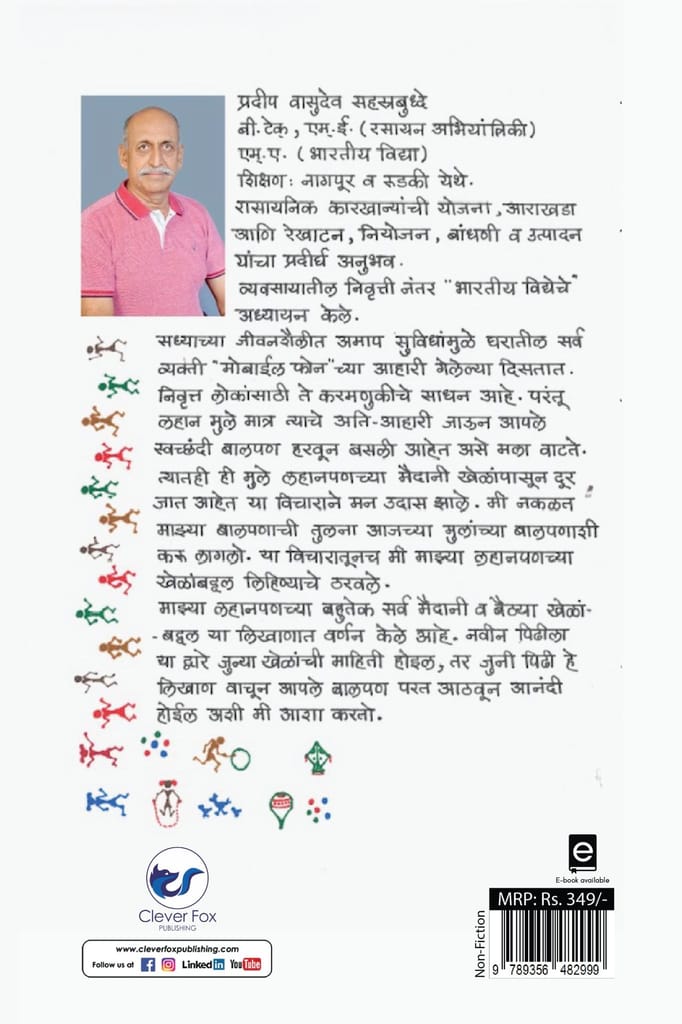 प्रदीप वासुदेव सहस्रबुध्दे
बी.टेक्, एम्.ई. (रसायन अभियांत्रिकी)
एम्.ए. (भारतीय विद्या)
शिक्षण: नागपूर व रुडकी येथे.
रासायनिक कारखान्यांची योजना, आराखडा
आणि रेखाटन, नियोजन, बांधणी व उत्पादन
यांचा प्रदीर्घ अनुभव.
व्यवसायातील निवृत्ती नंतर "भारतीय विद्येचे"
अध्यायन केले.
सध्याच्या जीवनशैलीत अमाप सुविधांमुळे घरातील सर्व
व्यक्ती "मोबाईल फोन"च्या आहारी गेलेल्या दिसतात.
निवृत्त लोकांसाठी ते करमणुकीचे साधन आहे. परंतू
लहान मुले मात्र त्याचे अति-आहारी जाऊन आपले
स्वच्छंदी बालपण हरवून बसली आहेत असे मला वाटते.
त्यातही ही मुले लहानपणच्या मैदानी खेळांपासून दूर
जात आहेत या विचाराने मन उदास झाले. मी नकळत
माझ्या बालपणाची तुलना आजच्या मुलांच्या बालपणाशी
करू लागलो. या विचारातूनच मी माझ्या लहानपणच्या
खेळांबद्दल लिहिण्याचे ठरवले.
माझ्या लहानपणच्या बहुतेक सर्व मैदानी व बैठ्या खेळां-
-बद्दल या लिखाणात वर्णन केले आहे. नवीन पिढीला
या द्वारे जुन्या खेळांची माहिती होइल, तर जुनी पिढी हे
लिखाण वाचून आपले बालपण परत आठवून आनंदी
होईल अशी मी आशा करतो.
Clever Fox
PUBLISHING
www.cleverfoxpublishing.com
Follow us at f LinkedIn YouTube
e
E-book available
MRP: Rs. 349/-
Non-Fiction
9 789356 482999